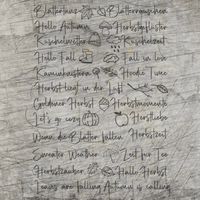 Blättertanz Blätterrauschen
Hello Autumn Herbstgeflüster
Raschelwetter Raschelzeit
Hello Fall Fall in love
Kaminknistern Hoodie Time
Herbst liegt in der Luft
Goldener Herbst Herbstmomente
Let's go cozy Herbstliebe
Wenn die Blätter fallen Herbstzeit
Sweater Weather Zeit für Tee
Herbstzauber Hallo Herbst
Leaves are falling Autumn is calling